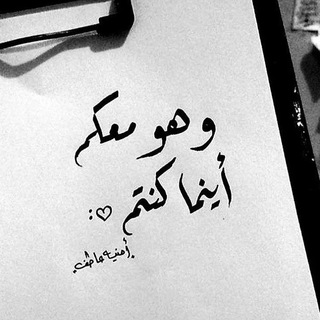 وهو معكم
أينما كنتم ♡:
أمنيه عاطف